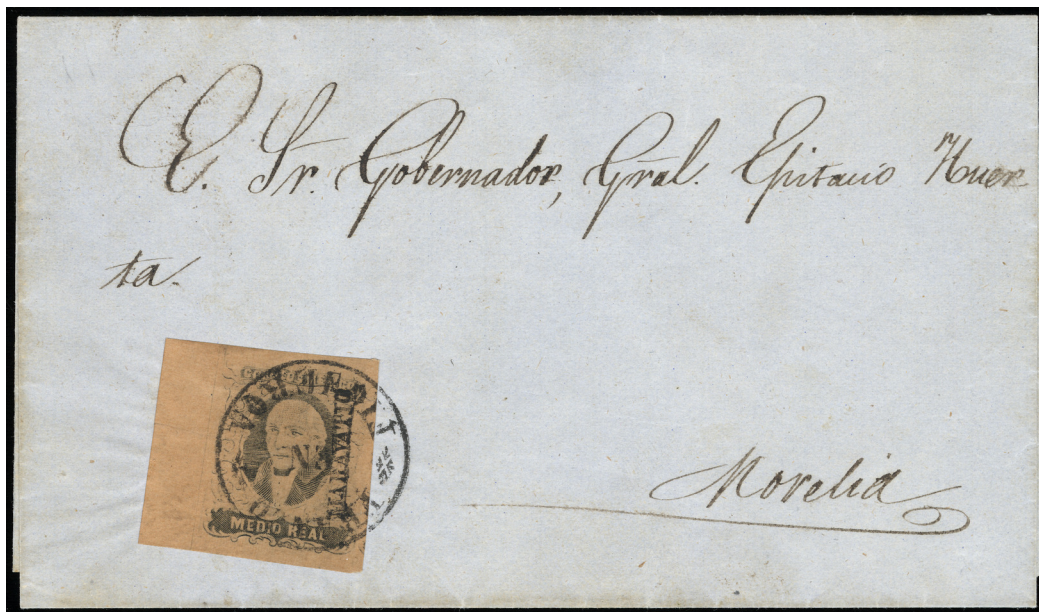 E. Sr. Gobernador, Gral. Epitacio Huer
ta.
MARAVATIO
MEDIO REAL
Morelia